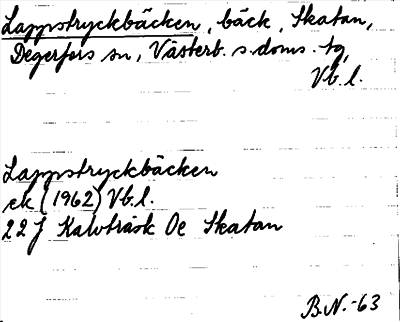 Lappstryckbäcken, bäck, Skatan,
Degerfors sn, Västerb. s. doms. tg,
Vb. l.
Lappstryckbäcken
ek (1962) Vb. l.
22 J Kalvträsk Oe Skatan
B.N. -63